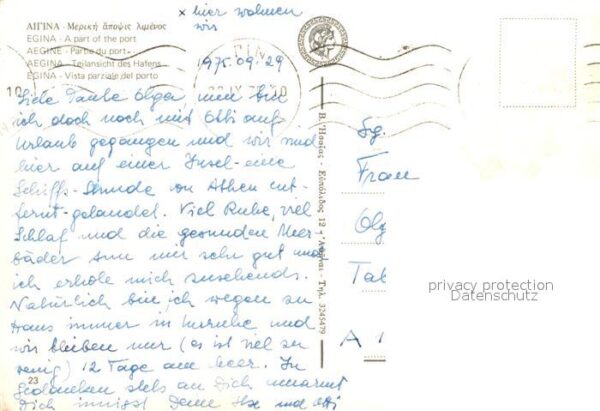 x hier wohnen
wir
ΑΙΓΙΝΑ - Μερική ἄποψις λιμένος
EGINA - A part of the port
AEGINE - Partie du port
AEGINA - Teilansicht des Hafens
EGINA - Vista parziale del porto
1975.09.29
Liebe Tante Olga, nun bin
ich doch noch mit Otti auf
Urlaub gegangen und wir sind
hier auf einer Insel - eine
Schiffs-Stunde von Athen ent-
fernt - gelandet. Viel Ruhe, viel
Schlaf und die gesunden Meer-
bäder tun mir sehr gut und
ich erhole mich zusehends.
Natürlich bin ich wegen zu
Haus immer in Unruhe und
wir bleiben nur (es ist viel zu
wenig) 12 Tage am Meer. In
Gedanken stets an Dich umarmt
Dich innigst Deine Ilse und Otti
23
Β. Ἠσαΐας - Εὐπόλιδος 12 - Ἀθῆναι - Τηλ. 3245459
Sg.
Frau
Olg
Tab
A
privacy protection
Datenschutz